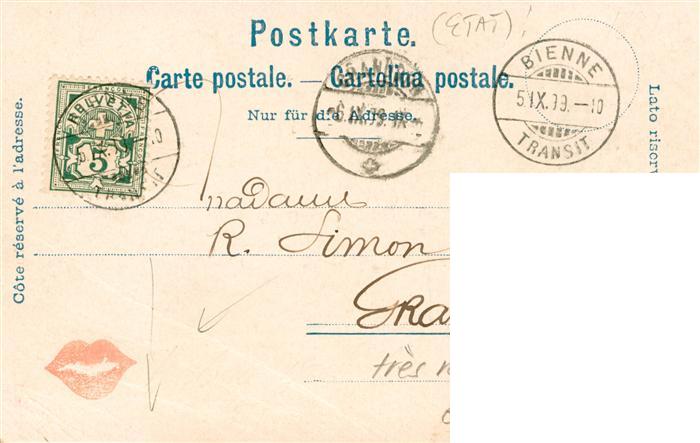 Postkarte.
(ETAT)!
Carte postale. — Cartolina postale.
Nur für die Adresse.
Côté réservé à l'adresse.
Lato riserv
HELVETIA
5
BIENNE
5.IX.99.–10
TRANSIT
Madame
R. Simon
GRA
très